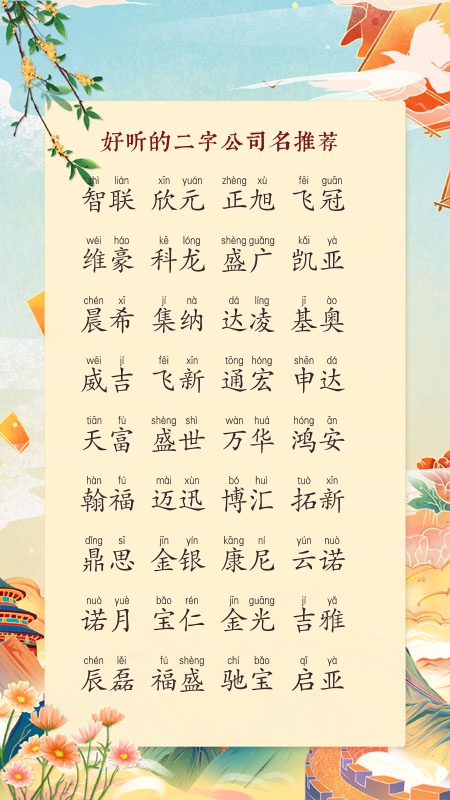 好听的二字公司名推荐
zhì lián xīn yuán zhèng xù fēi guān
智联 欣元 正旭 飞冠
wéi háo kē lóng shèng guǎng kǎi yà
维豪 科龙 盛广 凯亚
chén xī jí nà dá líng jī ào
晨希 集纳 达凌 基奥
wēi jí fēi xīn tōng hóng shēn dá
威吉 飞新 通宏 申达
tiān fù shèng shì wàn huá hóng ān
天富 盛世 万华 鸿安
hàn fú mài xùn bó huì tuò xīn
翰福 迈迅 博汇 拓新
dǐng sī jīn yín kāng ní yún nuò
鼎思 金银 康尼 云诺
nuò yuè bǎo rén jīn guāng jí yǎ
诺月 宝仁 金光 吉雅
chén lěi fú shèng chí bǎo qǐ yà
辰磊 福盛 驰宝 启亚